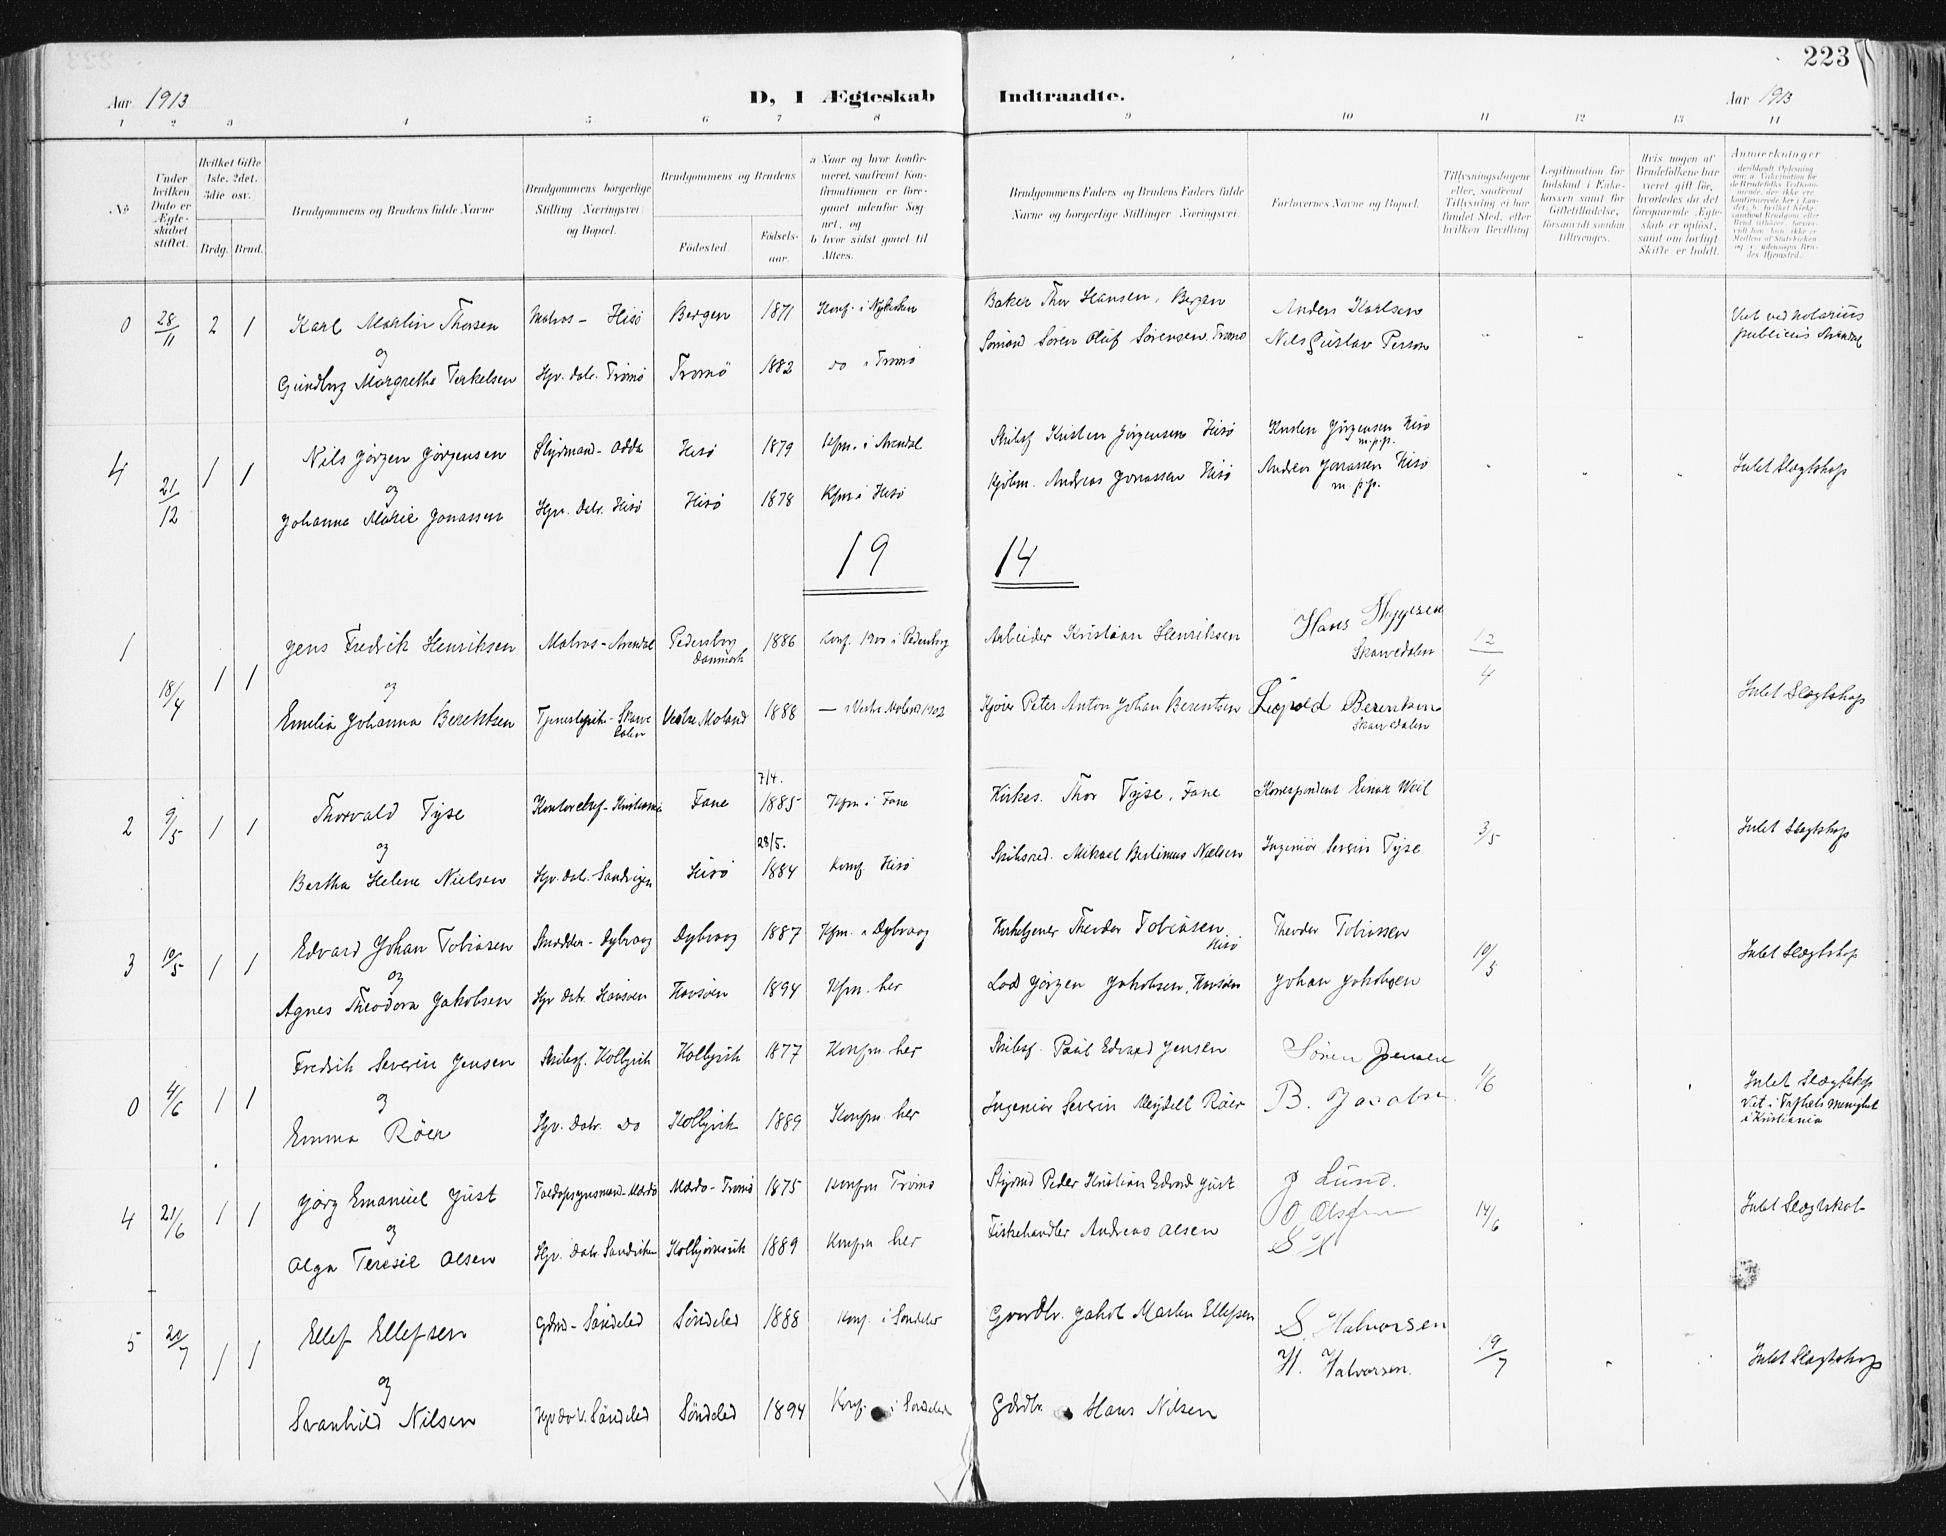 223
Aar 1913
D, I Ægteskab Indtraadte.
Aar 1913
1 2 3 4 5 6 7 8 9 10 11 12 13 14
No
Under hvilken Dato er Ægteskabet stiftet.
Hvilket Gifte 1ste, 2det, 3die osv.
Brdg. Brud.
Brudgommens og Brudens fulde Navne
Brudgommens borgerlige Stilling (Næringsvei) og Bopæl.
Brudgommens og Brudens
Fødested.
Fødselsaar.
a Naar og hvor konfirmeret, saafremt Konfirmationen er foregaaet udenfor Sognet, og
b hvor sidst gaaet til Alters.
Brudgommens Faders og Brudens Faders fulde Navne og borgerlige Stillinger (Næringsvei).
Forlovernes Navne og Bopæl.
Tillysningsdagene eller, saafremt Tillysning ei har fundet Sted, efter hvilken Bevilling
Legitimation for Indskud i Enkekassen samt for Giftetilladelse, forsaavidt saadan tiltrænges.
Hvis nogen af Brudefolkene har været gift før, hvorledes da det foregaaende Ægteskab er opløst, samt om lovligt Skifte er holdt.
Anmærkninger
0 28/11 2 1 Karl Martin Thorsen Matros - Hisø Bergen 1871 Konf. i Nykirken Baker Thor Hansen, Bergen Anders Karlsen Viet ved notarius publicus Arendal
og
Gundborg Margrethe Terkelsen Hgv. datr. Tromø Tromö 1882 do i Tromø Sømand Søren Oluf Sørensen. Tromø Nils Gustav Person
4 21/12 1 1 Nils Jörgen Jörgensen Styrmand - Odda Hisø 1879 Kfm. i Arendal Skibsf Kristen Jörgensen Hisø Kristen Jörgensen Hisø m.p.p. Intet Slægtskap
og
Johanne Marie Jonassen Hgv. Datr. Hisø Hisø 1878 Kfm i Hisø Kjøbm. Andreas Jonassen Hisø Andreas Jonassen Hisø m.p.p.
19 14
1 18/4 1 1 Jens Fredrik Henriksen Matros - Arendal Pedersborg Danmark 1886 Konf. 1900 i Pedersborg Arbeider Kristian Henriksen Hans Skarvedalen 12/4 Intet Slægtskap
og
Emelia Johanna Berentsen Vestre Moland 1888 - i Vestre Moland 1902 Peter Anton Johan Berentsen Leopold Berentsen Skarvedalen
2 9/5 1 1 Thorvald Tyse Kontorchef - Kristiania Fane 7/4. 1885 Kfm i Fane Kirkes. Thor Tyse, Fane Korrespondent Einar Weil 3/5 Intet Slægtskap
og
Bertha Helene Nielsen Hgv. datr. Sandvigen Hisø 28/5. 1884 Konf. Hisø Skibsred. Mikael Nielsen Ingeniör Severin Tyse
3 10/5 1 1 Edvard Johan Tobiasen Snedker - Dybvaag Dybvaag 1887 Kfm. i Dybvaag Kirketjener Theodor Tobiasen Hisø Theodor Tobiassen 10/5 Intet Slægtskap
og
Agnes Theodora Jakobsen Hgv datr. Havsøen Havsöen 1894 Kfm. her Lods Jörgen Jakobsen, Havsöen Johan Jakobsen
0 4/6 1 1 Fredrik Severin Jensen Skibsf. Kolbjvik Kolbjvik 1877 Konfm. her Skibsf. Paul Edvard Jensen Sören Jensen 1/6 Intet Slægtskap
og
Emma Röer Hgv. Datr. do Kolbjvik 1889 Konfm. her Ingeniør Severin Meydell Röer B. Jacobsen Viet i menighet i Kristiania
4 21/6 1 1 Jörg Emanuel Just Toldopsynsmand - Mærdø Mærdø - Tromø 1875 Konfm Tromø Styrmd Peder Kristian Edvard Just J Lund. 14/6 Intet Slægtskab
og
Olga Teresie Olsen Hgv. Datr. Sandviken Kolbjörnsvik 1889 Konfm her Fiskehandler Andreas Olsen O Olsen
5 20/7 1 1 Ellef Ellefsen Gdbr - Söndeled Söndeled 1888 Konf. i Søndeled Gaardbr. Jakob Martin Ellefsen S. Halvorsen 19/7 Intet Slægtskap
og
Svanhild Nilsen Söndeled Söndeled 1894 Konf. i Søndeled Gårdbr. Hans Nilsen H. Halvorsen.